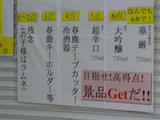 1～2点
残念
(お子様はラムネ)
3点
春鹿キーホルダー等
4点
春鹿テープカッター
冷酒器
5点
超辛口
720ml
6点
大吟醸
720ml
なんでも
6本で!
華厳
720ml
目指せ!高得点!
景品Getだ!!